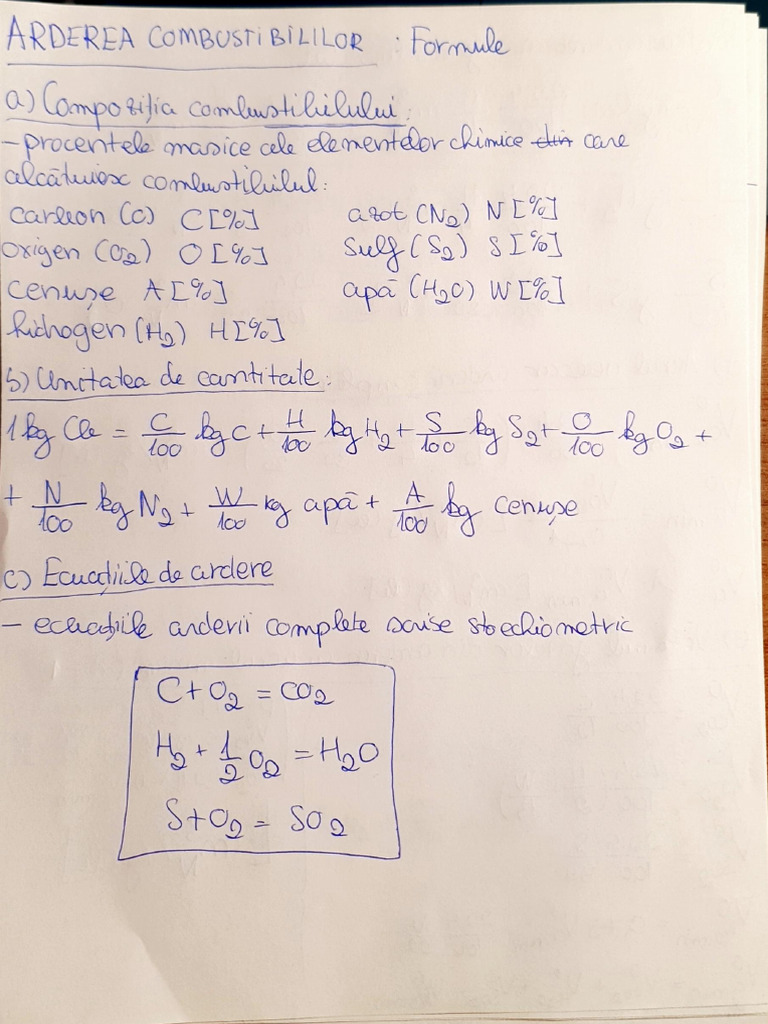 ARDEREA COMBUSTIBILILOR : Formule
a) Compoziția combustibilului:
- procentele masice ale elementelor chimice din care
alcătuiesc combustibilul:
carbon (C) C[%] azot (N₂) N[%]
oxigen (O₂) O[%] sulf (S₂) S[%]
cenușe A[%] apă (H₂O) W[%]
hidrogen (H₂) H[%]
b) Unitatea de cantitate:
1kg Cb = C/100 kg C + H/100 kg H₂ + S/100 kg S₂ + O/100 kg O₂ +
+ N/100 kg N₂ + W/100 kg apă + A/100 kg cenușe
c) Ecuațiile de ardere
- ecuațiile arderii complete scrise stoechiometric
C + O₂ = CO₂
H₂ + 1/2 O₂ = H₂O
S + O₂ = SO₂